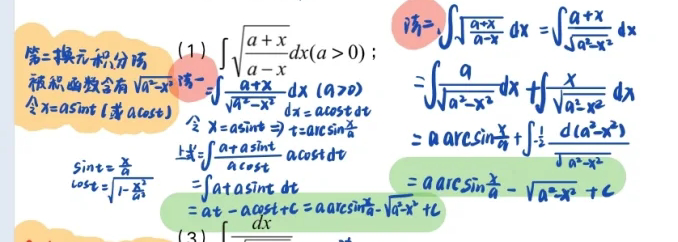 第二换元积分法
被积函数含有 √(a²-x²)
令 x=asint (或 acost)
sint=x/a
cost=√(1-x²/a²)
(1) ∫√((a+x)/(a-x))dx(a>0);
法一
=∫(a+x)/√(a²-x²) dx (a>0)
dx=acostdt
令 x=asint ⇒ t=arcsin x/a
上式=∫(a+asint)/(acost) acostdt
=∫a+asint dt
=at-acost+C=aarcsin x/a-√(a²-x²)+C
(3) ∫dx
法二、∫√((a+x)/(a-x)) dx =∫(a+x)/√(a²-x²) dx
=∫a/√(a²-x²) dx+∫x/√(a²-x²) dx
=aarcsin x/a+∫-1/2 d(a²-x²)/√(a²-x²)
=aarcsin x/a-√(a²-x²)+C